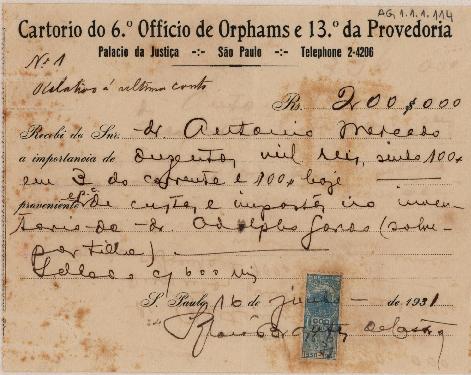 AG 1.1.1.114
Cartorio do 6.º Officio de Orphams e 13.º da Provedoria
Palacio da Justiça -:- São Paulo -:- Telephone 2-4206
Nº 1
Relativo á ultima conta
Rs. 200$000
Recebi do Snr. dr Antonio Mercado
a importancia de duzentos mil reis, sendo 100$
em 3 do corrente e 100$ hoje
proveniente de custas e impostos no inven-
tario do dr. Adolpho Gordo (sobre-
partilha)
Sellado c/ 600 rs
S. Paulo, 16 de junho de 1931